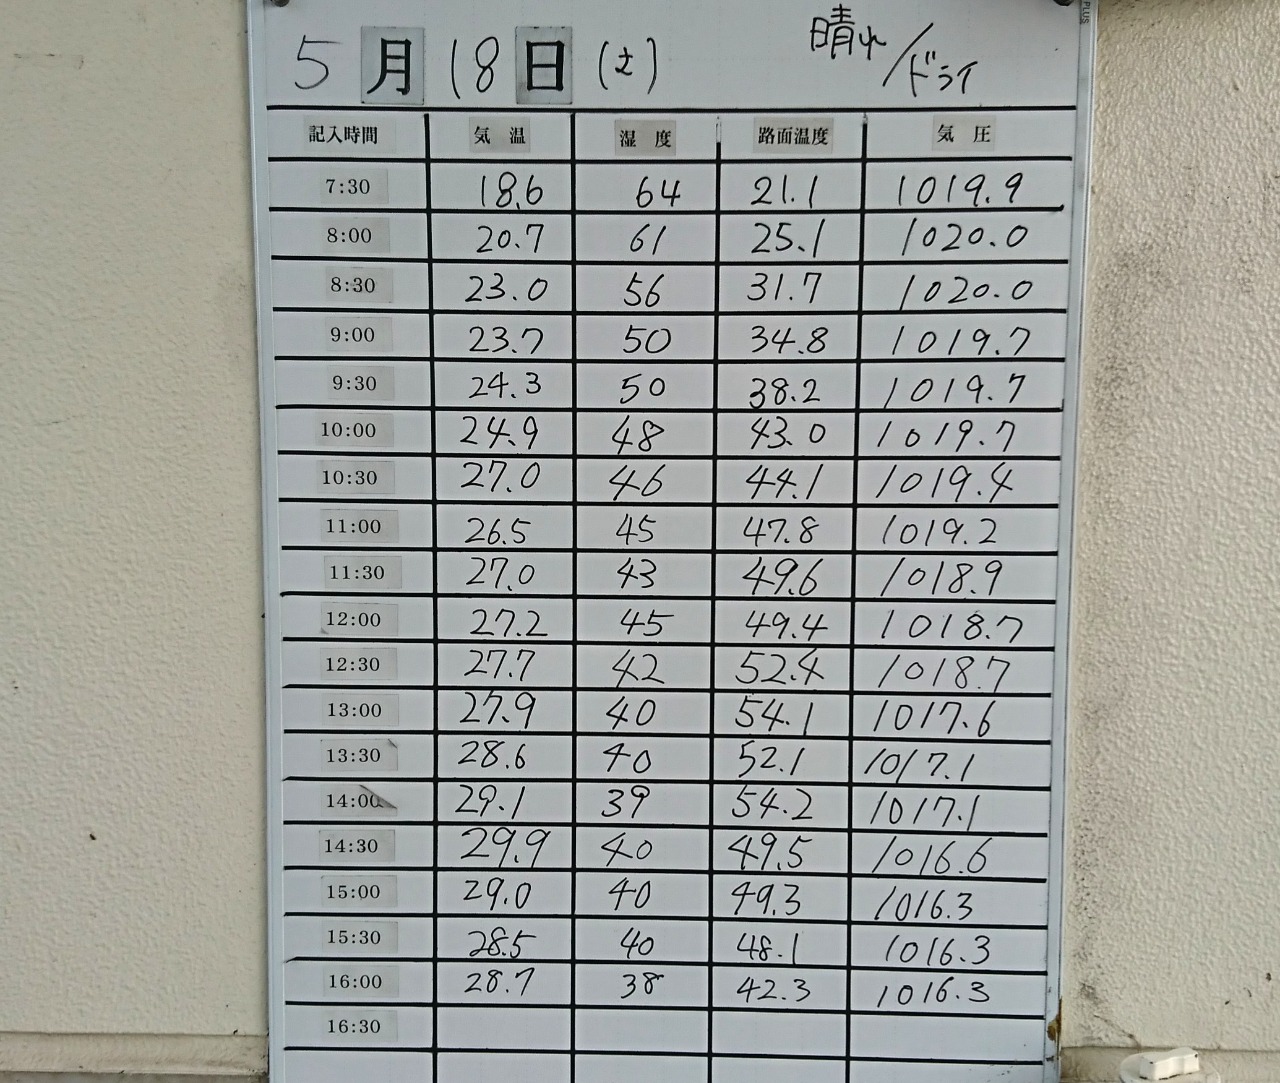 5月18日(土) 晴れ/ドライ
記入時間 気温 湿度 路面温度 気圧
7:30 18.6 64 21.1 1019.9
8:00 20.7 61 25.1 1020.0
8:30 23.0 56 31.7 1020.0
9:00 23.7 50 34.8 1019.7
9:30 24.3 50 38.2 1019.7
10:00 24.9 48 43.0 1019.7
10:30 27.0 46 44.1 1019.4
11:00 26.5 45 47.8 1019.2
11:30 27.0 43 49.6 1018.9
12:00 27.2 45 49.4 1018.7
12:30 27.7 42 52.4 1018.7
13:00 27.9 40 54.1 1017.6
13:30 28.6 40 52.1 1017.1
14:00 29.1 39 54.2 1017.1
14:30 29.9 40 49.5 1016.6
15:00 29.0 40 49.3 1016.3
15:30 28.5 40 48.1 1016.3
16:00 28.7 38 42.3 1016.3
16:30
PLUS